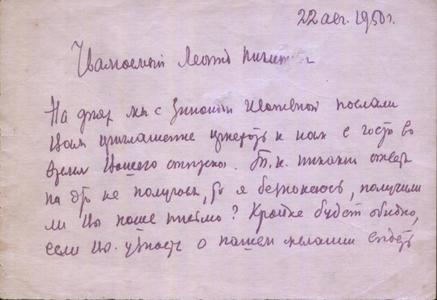 22 авг. 1950г.
Уважаемый Леонид
На днях мы с Зинаидой Ивановной послали
Вам приглашение приехать к нам в гости во
время Вашего отпуска. Т.к. никакой ответ
на не получен, то я беспокоюсь, получили
ли Вы наше письмо? Крайне будет обидно,
если Вы. о нашем желании видеть